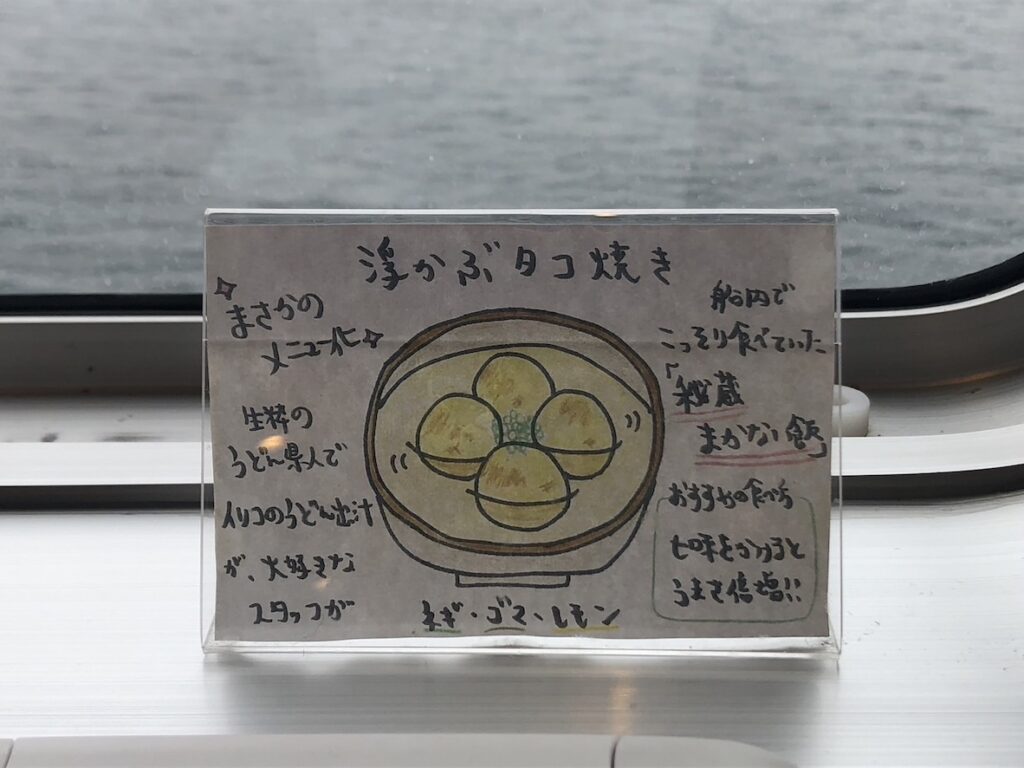 浮かぶタコ焼き
まさかの
メニュー化
生粋の
うどん県人で
イリコのうどん出汁
が、大好きな
スタッフが
船内で
こっそり食べていた
「秘蔵
まかない飯」
おすすめの食べ方
七味をかけると
うまさ倍増!!
ネギ・ゴマ・レモン